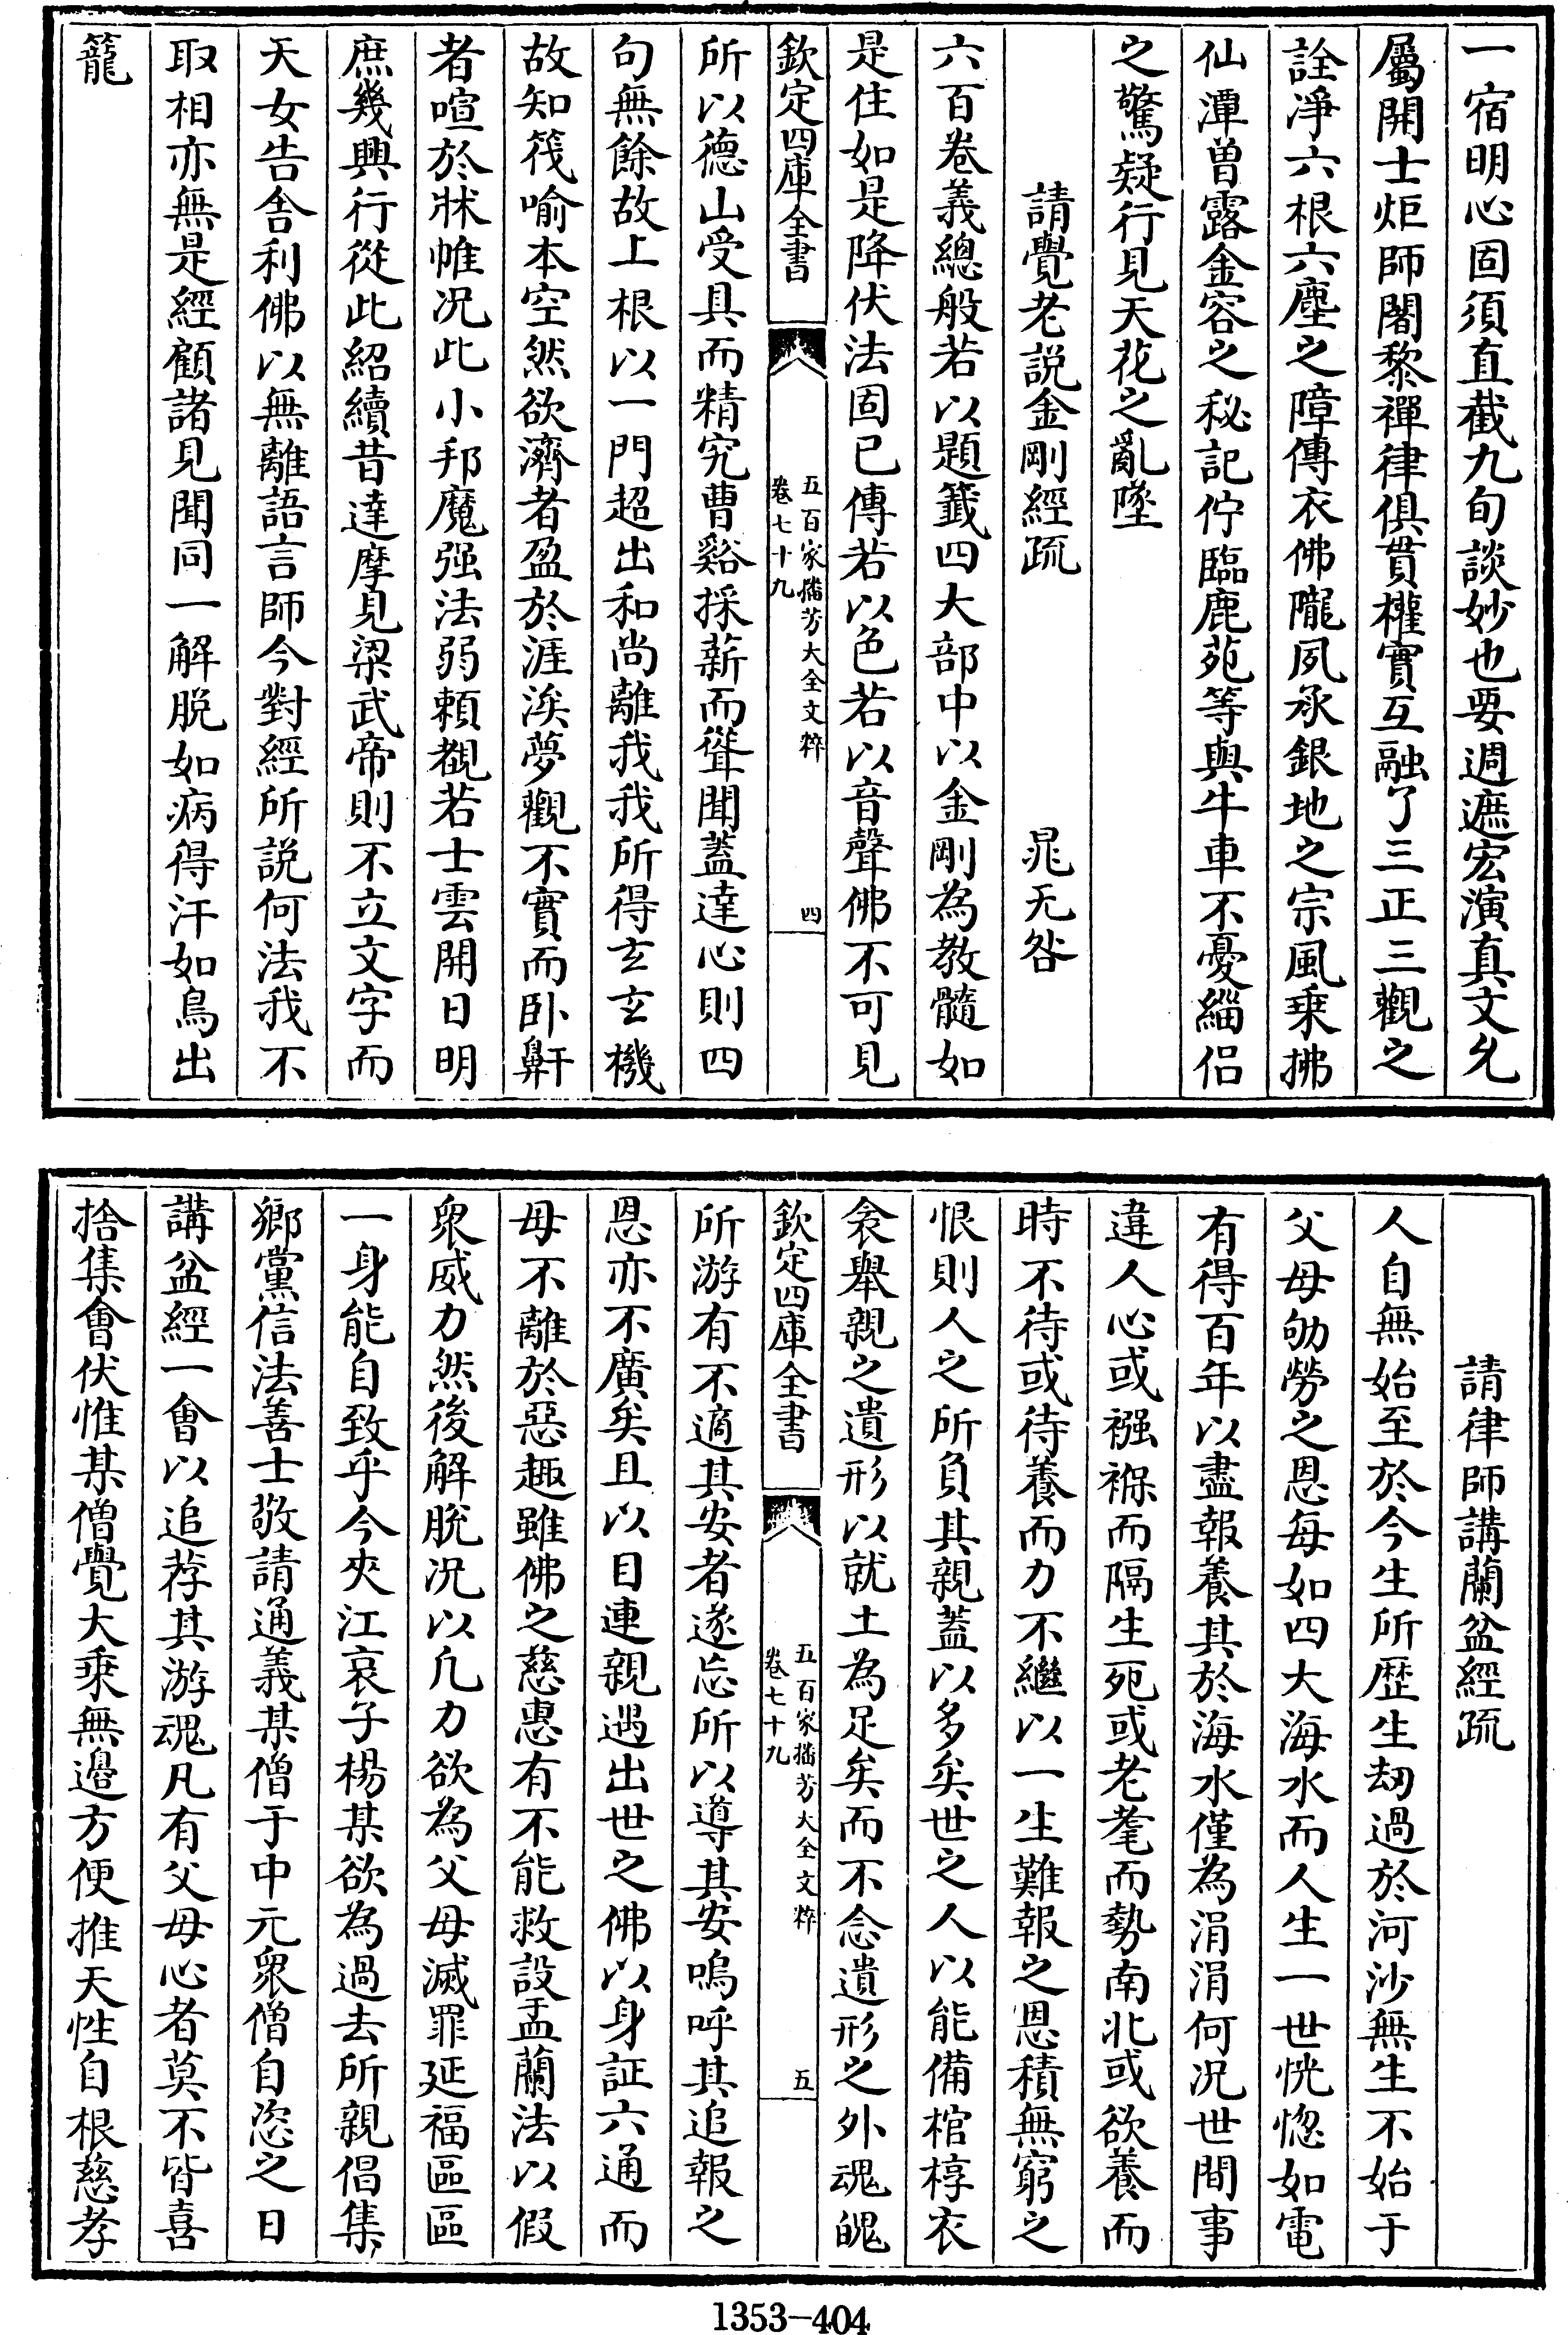 一宿明心固須直截九旬談妙也要週遮宏演真文允
屬開士炬師闍黎禪律俱貫權實互融了三正三觀之
詮凈六根六塵之障傳衣佛隴夙承銀地之宗風乗拂
仙潭曽露金容之秘記佇臨鹿苑等與牛車不憂緇侣
之驚疑行見天花之亂墜
請覺老説金剛經疏 晁无咎
六百巻義總般若以題籖四大部中以金剛為教髓如
是住如是降伏法固已傳若以色若以音聲佛不可見
欽定四庫全書 五百家播芳大全文粹 卷七十九 四
所以德山受具而精究曹谿採薪而聳聞蓋達心則四
句無餘故上根以一門超出和尚離我我所得玄玄機
故知筏喻本空然欲濟者盈於涯涘夢觀不實而卧鼾
者喧於牀帷况此小邦魔强法弱頼覩若士雲開日明
庶幾興行從此紹續昔達摩見梁武帝則不立文字而
天女告舎利佛以無離語言師今對經所説何法我不
取相亦無是經顧諸見聞同一解脱如病得汗如鳥出
籠
請律師講蘭盆經疏
人自無始至於今生所歴生刼過於河沙無生不始于
父母劬勞之恩每如四大海水而人生一世恍惚如電
有得百年以盡報養其於海水僅為涓涓何况世間事
違人心或襁褓而隔生死或老耄而勢南北或欲養而
時不待或待養而力不繼以一生難報之恩積無窮之
恨則人之所負其親蓋以多矣世之人以能備棺椁衣
衾舉親之遺形以就土為足矣而不念遺形之外魂魄
欽定四庫全書 五百家播芳大全文粹 卷七十九 五
所游有不適其安者遂忘所以導其安嗚呼其追報之
恩亦不廣矣且以目連親遇出世之佛以身証六通而
母不離於惡趣雖佛之慈惠有不能救設盂蘭法以假
衆威力然後解脱况以凡力欲為父母滅罪延福區區
一身能自致乎今夾江哀子楊某欲為過去所親倡集
鄉黨信法善士敬請通義某僧于中元衆僧自恣之日
講盆經一會以追荐其游魂凡有父母心者莫不皆喜
捨集會伏惟某僧覺大乗無邉方便推天性自根慈孝
1353-404